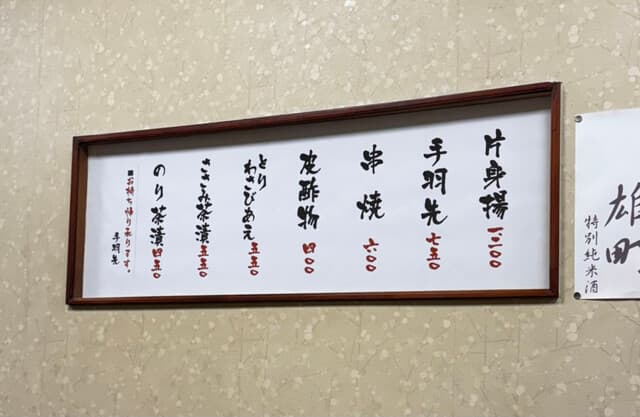 片身揚 一、三〇〇
手羽先 七五〇
串焼 六〇〇
皮酢物 四〇〇
とりわさびあえ 五五〇
ささみ茶漬 五五〇
のり茶漬 四五〇
■お持ち帰り承ります。
手羽先
雄町
特別純米酒